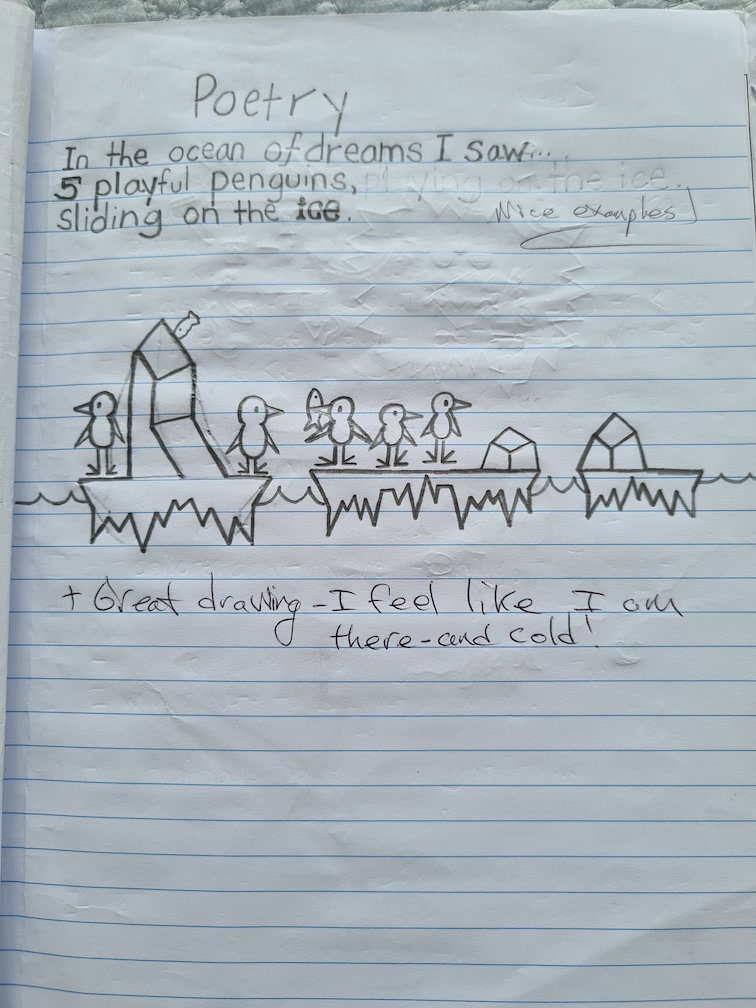 Poetry
In the ocean of dreams I saw...
5 playful penguins, playing on the ice.
sliding on the ice.
Nice examples
+ Great drawing - I feel like I am
there - and cold!